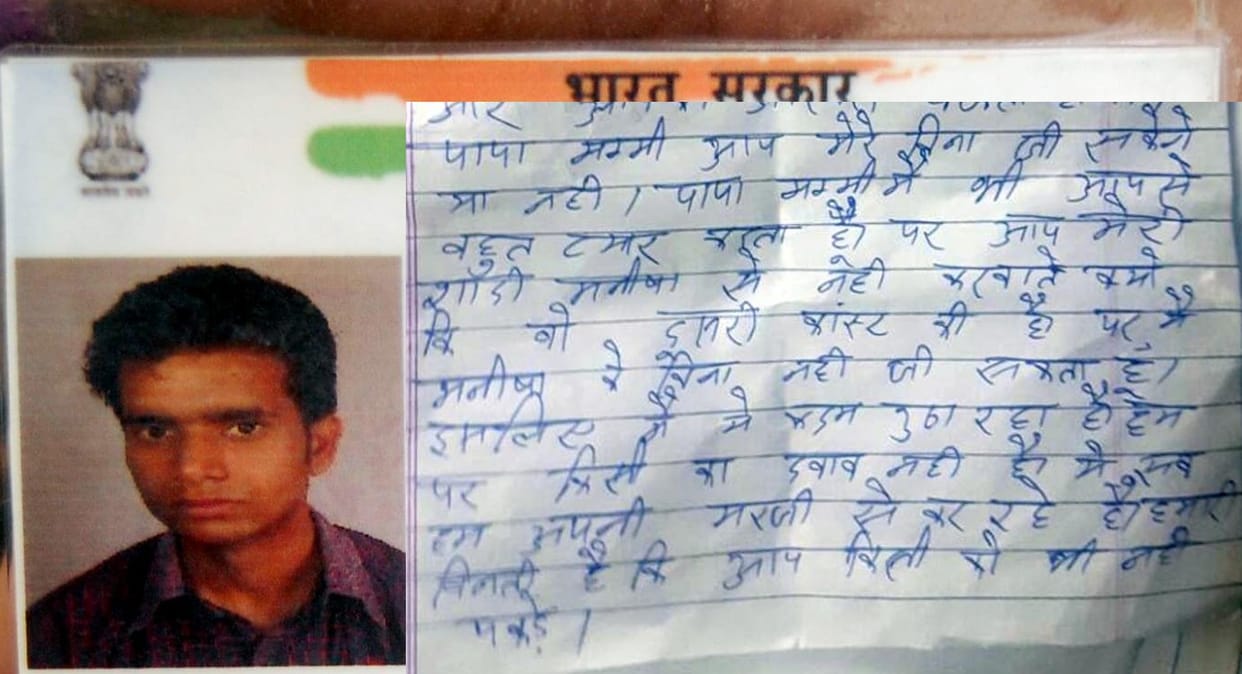 भारत सरकार
और
पापा मम्मी आप मेरे बिना जी सकेंगे
या नही । पापा मम्मी मैं भी आप से
बहुत प्यार करता हैं पर आप मेरी
शादी मनीषा से नही करवाते क्यो
कि वो दुसरी कांस्ट की हैं पर मैं
मनीषा के बिना नही जी सकता हैं।
इसलिए मैं ये कदम उठा रहा हैं हम
पर किसी का दबाव नही हैं। ये सब
हम अपनी मरजी से कर रहे हैं हमारी
विनती हैं कि आप किसी को भी नही
पकड़े ।